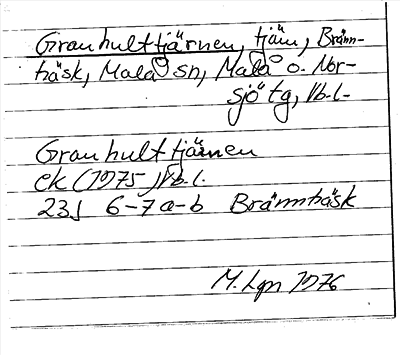 Granhulttjärnen, tjärn, Bränn-
träsk, Malå sn, Malå o. Nor-
sjö tg, Vb. l.
Granhulttjärnen
ek (1975) Vb. l.
23J 6-7 a-b Brännträsk
M. Lgn 1976